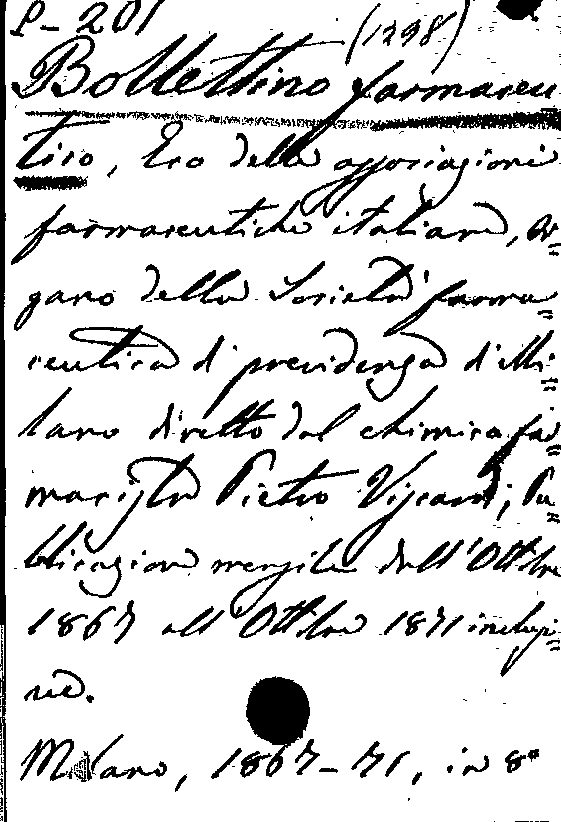 P-201
(1298)
Bollettino farmaceu
tico, Eco delle associazioni
farmaceutiche italiane, or=
gano della Società farma=
ceutica di previdenza di Mi=
lano diretto dal chimico far=
macista Pietro Viscardi; Pu=
blicazione mensile dall'Ottobre
1867 all'Ottobre 1871 inclusi=
ve.
Milano, 1867-71, in 8°